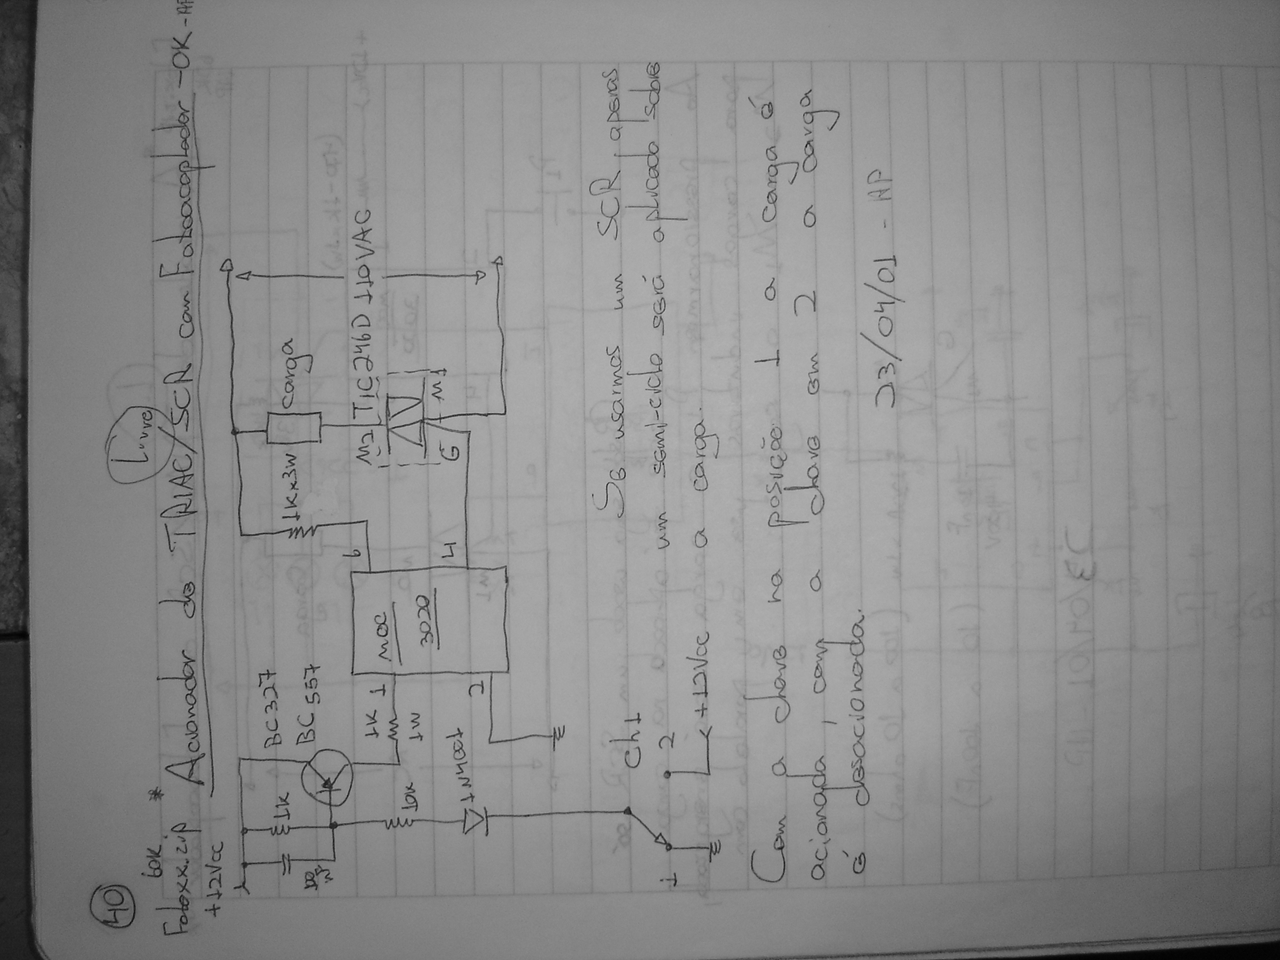 40
Livro
60K *
Fotoxx.zip Acionador de TRIAC/SCR com Fotoacoplador - OK - AP
+12Vcc
BC327
BC557
1K
100
nF
10K
1N4001
1K
1W
1
2
MOC
3020
6
4
1Kx3W
carga
M2
TIC246D
110VAC
G
M1
Ch1
1
2
+12Vcc
Se usarmos um SCR, apenas
um semi-ciclo será aplicado sobre
a carga.
Com a chave na posição 1 a carga é
acionada, com a chave em 2 a carga
é desacionada.
23/04/01 - AP